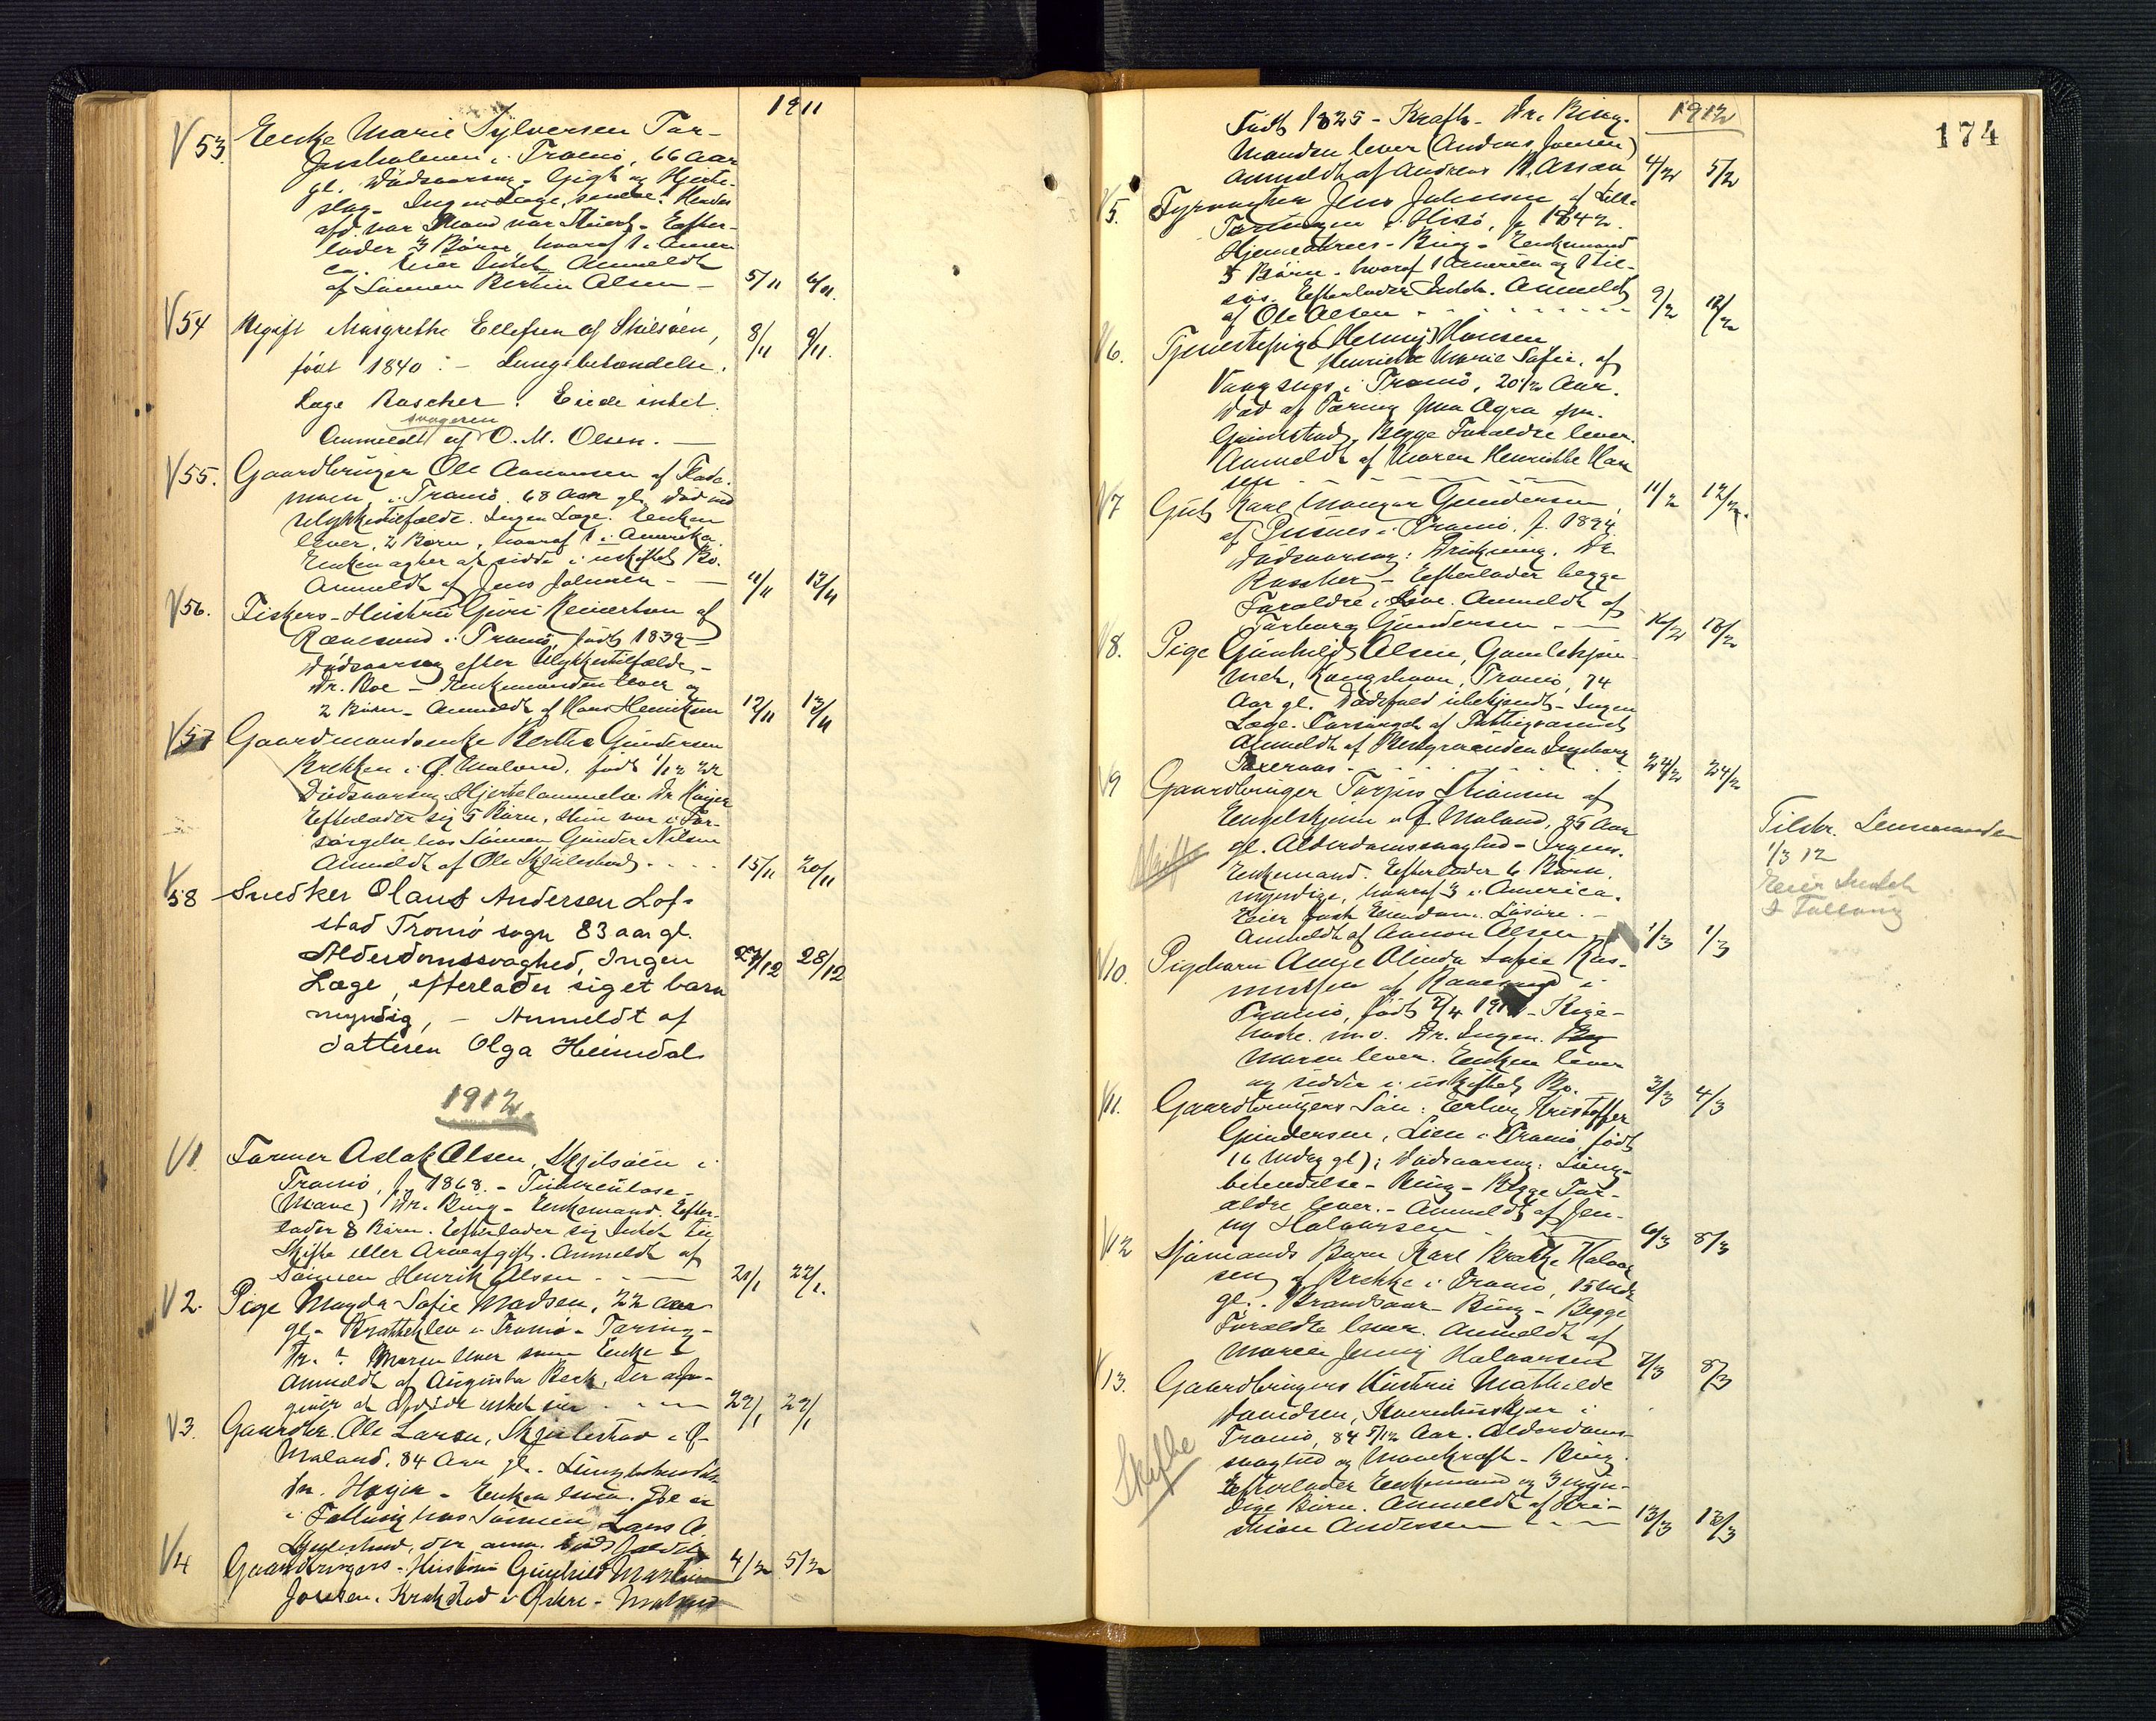 1911
53. Enke Marie Sylversen Tor-
jusholmen i Tromø, 66 Aar
gl. Dødsaarsag. Gigt og Hjerte-
slag. Ingen Læge, senere. Hendes
afd. var Mand var Stuert. Efter-
lader 3 Børn, hvoraf 1 i Ameri
ca. Eier Intet. Anmeldt
af Sønnen Bertin Olsen – 5/11 6/11.
54 Ugift Margrethe Ellefsen af Skilsøen, 8/11 9/11.
født 1840 : – Lungebetændelse.
Læge Rascher. Eiede intet.
svogeren
Anmeldt af O. M. Olsen. —
55. Gaardbruger Ole Aanonsen af
moen, i Tromø. 68 Aar gl. Død ved
Ulykkestilfælde. Ingen Læge. Enken
lever, 2 Børn, hvoraf 1 i Amerika.
Enken agter at sidde i uskiftet Bo.
Anmeldt af Jens Johnsen – — 11/11 13/11
56. Fiskers-Hustru Guri Reiersen af
Rævesand i Tromø, født 1839 –
Dødsaarsag efter Ulykkestilfælde –
Dr. Roe – Enkemanden lever og
2 Børn – Anmeldt af Hans Henriksen 12/11 13/11
57 Gaardmandsenke Berthe Gundersen
Brekken i Ø. Moland, født 1/12 22
Dødsaarsag Hjertelammelse. Dr. Høyer
Efterlader sig 5 Børn, Hun var i For-
sørgelse hos Sønnen Gunder Nilsen
Anmeldt af Ole Skjulestad. . . . 15/11 20/11
58 Snedker Olaus Andersen Lof-
stad Tromø sogn 83 aar gl.
Alderdomssvaghed, Ingen 27/12 28/12
Læge, efterlader sig et barn
myndig, – Anmeldt af
datteren Olga Heimdal
1912
1. Former Aslak Olsen, Skilsøen i
Tromø, f. 1868. – Tuberculose –
(Mave) Dr. Bing – Enkemand. Efter-
lader 8 Børn. Efterlader sig Intet til
Skifte eller Arveafgift. Anmeldt af
Sønnen Henrik Olsen. – — 21/1 22/1.
2. Pige Magda Sofie Madsen, 22 Aar
gl. – Brattekleiv i Tromø – Tæring –
Dr. ? Moren lever som Enke &
Anmeldt af Augusta Beck, der op-
giver at Afdøde intet eier . – — 22/1 22/1
3. Gaardbr. Ole Larsen, Skjulestad i Ø.
Moland, 84 Aar gl. – Lungebetændelse
Dr. Høyer – Enken lever. De er
i Follaug hos Sønnen Lars O.
Skjulestad, der anm.
4 Gaardbrugers-Hustru Gunhild Martine 4/2 5/2
Jonsen, Krokstad i Østre-Moland
174
1912
Født 1825 – Kræft – Dr. Bing.
Manden lever (Anders Jonsen)
anmeldt af Andreas 4/2 5/2
5. Fyrvogter Jens Johnsen af Lille
Torungen i Hisø, f. 1842.
Hjerneabsces – Bing – Enkemand
5 Børn – hvoraf 1 America og 1 til-
søs. Efterlader Intet. Anmeldt
af Ole Olsen - - - - - - - 9/2 12/2
6. Tjenestepige (Henny) Hansen
Henriette Marie Sofie, af
i Tromø, 20 1/2 Aar.
Død af Tæring fra Agra pr.
Grimstad. Begge Forældre lever.
Anmeldt af Maren Henrikke Han
sen - - - - - 11/2 12/2.
7 Gut Karl Gundersen,
af Pusnes i Tromø, f. 1894
Dødsaarsag: Drukning. Dr.
Rascher – Efterlader begge
Forældre i Live. Anmeldt af
Torborg Gundersen – — 16/2 16/2
8. Pige Gunhild Olsen, Gamlehjem-
met, Kongshavn, Tromø, 74
Aar gl. Dødsfald ubekjendt – Ingen
Læge. Forsørget af Fattigvæsenet
Anmeldt af Bestyrerinden Ingeborg
24/2 24/2
9 Gaardbruger Torjus af
i Ø. Moland, 85 Aar
Skifte gl. Alderdomssvaghed – Irgens.
Enkemand. Efterlader 6 Børn,
myndige, hvoraf 3 i America.
Eier fast Eiendom. Løsøre. –
Anmeldt af Aanon Olsen 1/3 1/3
Tilskr. Lensmanden
1/3 12
Eier Intet
I Follaug
10. Pigebarn Aagje Olinda Sofie Ras-
mussen af Rævesand i
Tromø, født 7/4 191 – Kige-
hoste m.v. Dr. Ingen.
Moren lever. Enken lever
og sidder i uskiftet Bo. 3/3 4/3
11. Gaardbrugers Søn: Erling Kristoffer
Gundersen, Lien i Tromø født
16 Mdr gl); Dødsaarsag: Lunge-
betændelse – Bing – Begge For-
ældre lever. – Anmeldt af Jen-
ny Halvorsen. – — 6/3 8/3
12 Sjømands Barn Karl Brekke Halvor
sen af Brekke i Tromø, 15 Mdr
gl. – Brandsaar – Bing – Begge
Forældre lever. Anmeldt af
Moren Jenny Halvorsen 7/3 8/3
13. Gaardbrugers Hustru Mathilde
Davidsen, i
Skifte Tromø, 84 5/12 Aar. Alderdoms-
svaghed og Mavekræft – Bing.
Efterlader Enkemand og 3 myn-
dige Børn. Anmeldt af Kri-
stian Andersen – - - — 13/3 13/3